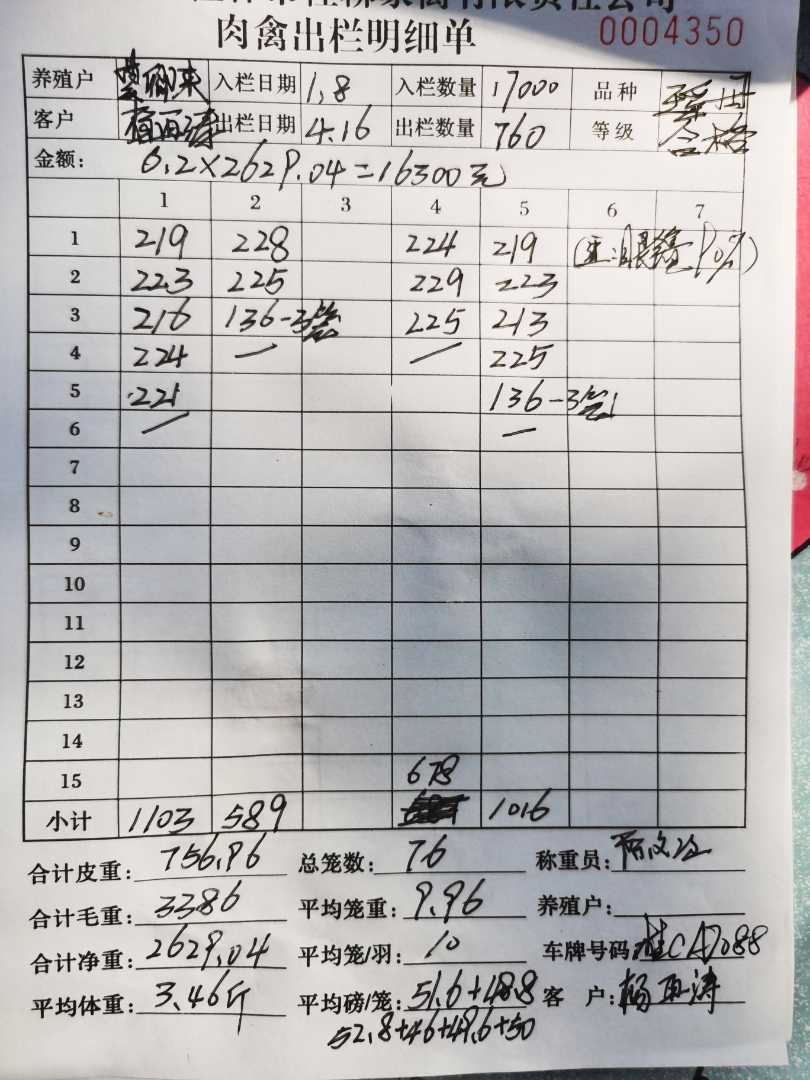 肉禽出栏明细单 0004350
养殖户 入栏日期 1.8 入栏数量 17000 品种
客户 出栏日期 4.16 出栏数量 760 等级 合格
金额: 6.2×2629.04=16300元
1 2 3 4 5 6 7
1 219 228 224 219
2 223 225 229 223
3 216 136-3笼 225 213
4 224 — — 225
5 221 136-3笼
6 — —
7
8
9
10
11
12
13
14
15 678
小计 1103 589 1016
合计皮重: 756.96 总笼数: 76 称重员:
合计毛重: 3386 平均笼重: 9.96 养殖户:
合计净重: 2629.04 平均笼/羽: 10 车牌号码: 桂CA7088
平均体重: 3.46斤 平均磅/笼: 51.6+48.8 客 户: 杨亚涛
52.8+46+49.6+50